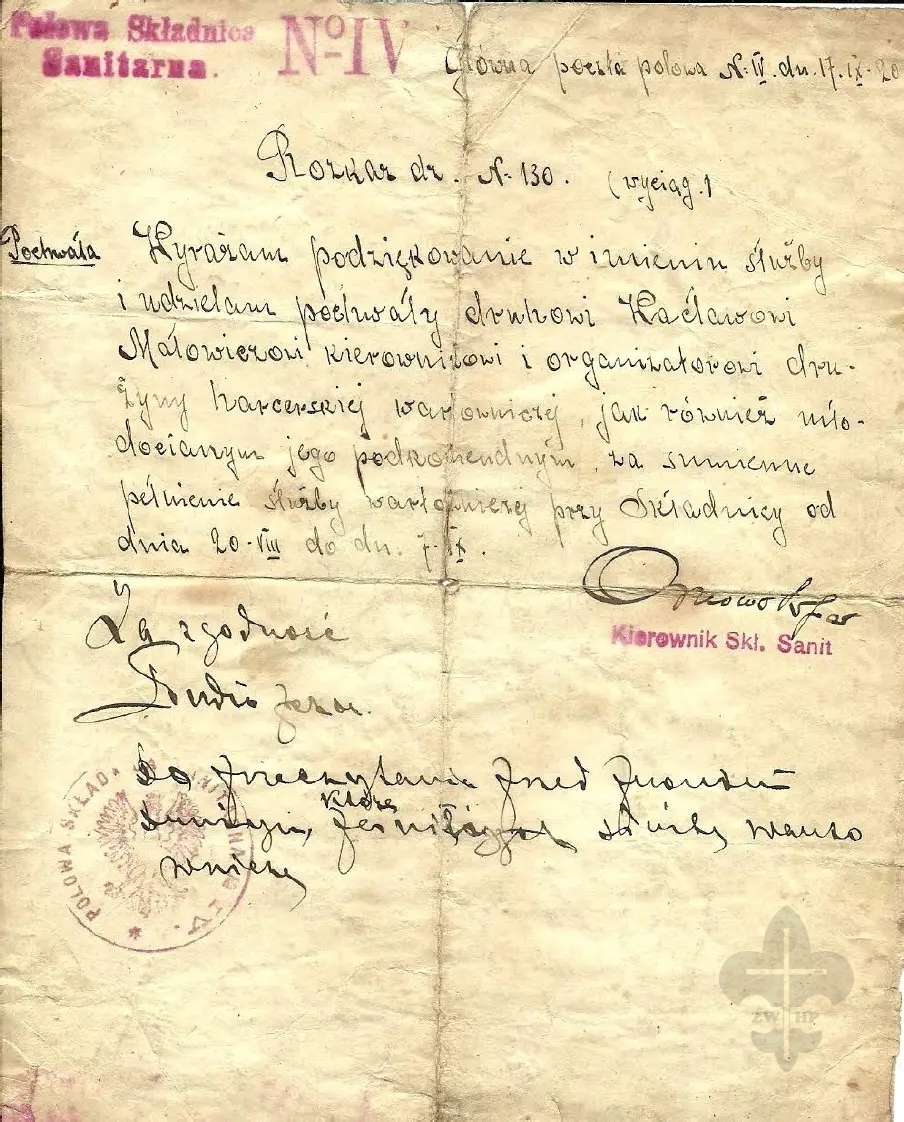 Polowa Składnica
Sanitarna.
No IV
Główna poczta polowa N. IV. dn. 17. IX. 20
Rozkaz dz. N. 130. (wyciąg.)
Pochwała
Wyrażam podziękowanie w imieniu służby
i udzielam pochwały druhowi Wacławowi
Małowiczowi kierownikowi i organizatorowi dru-
żyny harcerskiej wartowniczej, jak również mło-
docianym jego podkomendnym, za sumienne
pełnienie służby wartowniczej przy Składnicy od
dnia 20-VIII do dn. 7. IX.
Kierownik Skł. Sanit
Za zgodność
Do przeczytania przed frontem
drużyny, która pełniła służbę warto
wniczą
POLOWA SKŁAD.
ZW HP